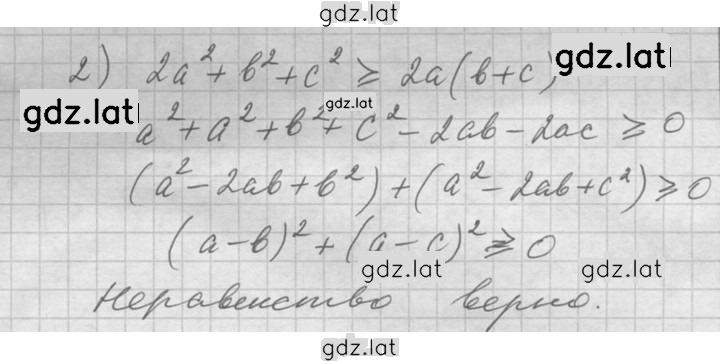 gdz.lat
2) 2a² + b² + c² ≥ 2a(b+c)
gdz.lat
gdz.lat
gdz.lat
a² + a² + b² + c² - 2ab - 2ac ≥ 0
(a² - 2ab + b²) + (a² - 2ab + c²) ≥ 0
(a - b)² + (a - c)² ≥ 0
gdz.lat
gdz.lat
Неравенство верно.
gdz.lat